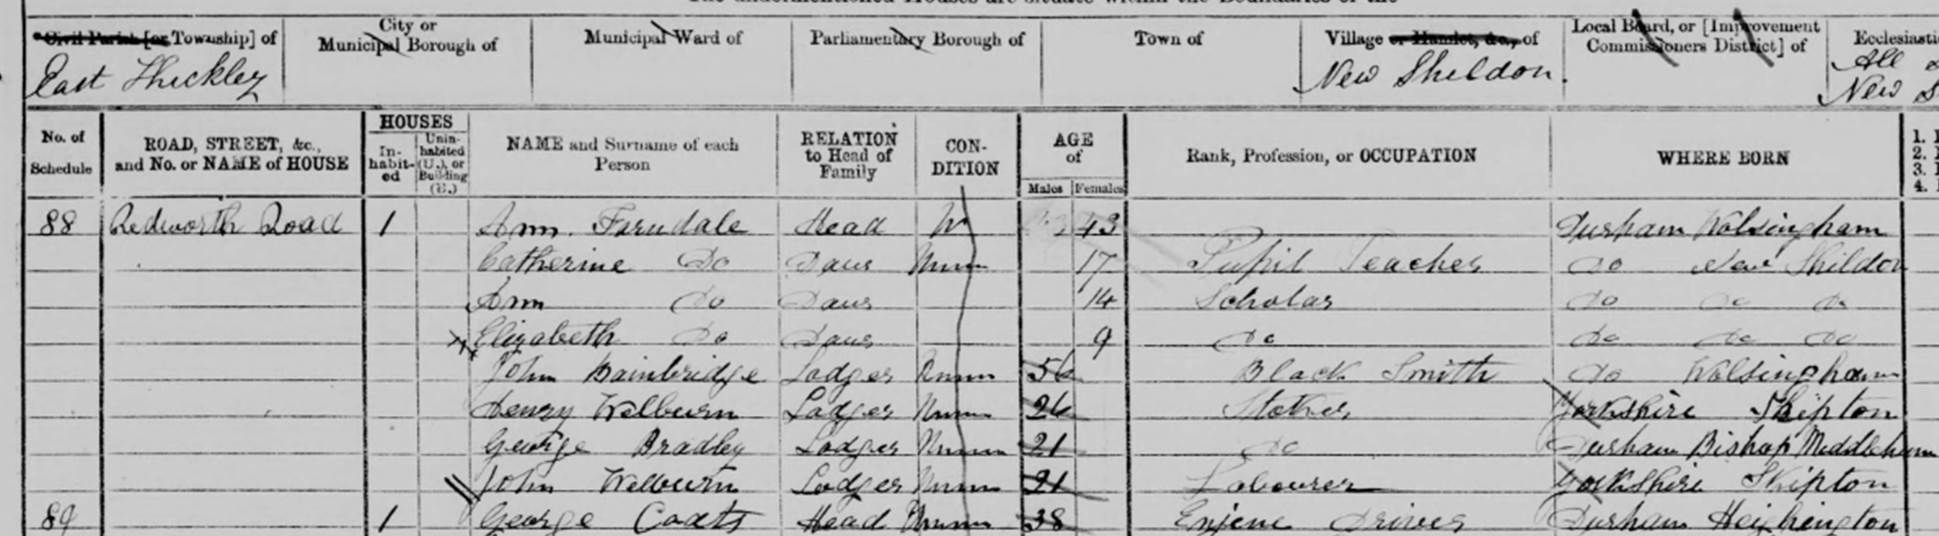 The undermentioned Houses are situate within the Boundaries of the
Civil Parish [or Township] of
City or Municipal Borough of
Municipal Ward of
Parliamentary Borough of
Town of
Village or Hamlet, &c., of
Local Board, or [Improvement Commissioners District] of
Ecclesiasti
East Thickley
New Sheldon.
All
New S
No. of Schedule
ROAD, STREET, &c., and No. or NAME of HOUSE
HOUSES
In-habit-ed
Unin-habited (U.), or Building (B.)
NAME and Surname of each Person
RELATION to Head of Family
CON-DITION
AGE of
Males Females
Rank, Profession, or OCCUPATION
WHERE BORN
1.
2.
3.
4.
88 Redworth Road 1 Ann Farndale Head W 43 Durham Wolsingham
Catherine Do Daur Unm 17 Pupil Teacher Do New Shildon
Ann Do Daur 14 Scholar Do Do Do
Elizabeth Do Daur 9 Do Do Do Do
John Bainbridge Lodger Unm 56 Black Smith Do Wolsingham
Henry Welburn Lodger Unm 26 Stoker Yorkshire Skipton
George Bradley Lodger Unm 21 Do Durham Bishop Middleham
John Welburn Lodger Unm 21 Labourer Yorkshire Skipton
89 1 George Coats Head 38 Enjene Driver Durham Heighington